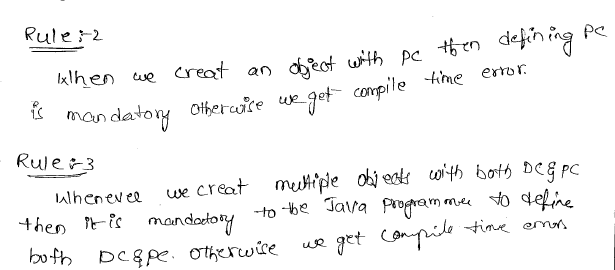 Rule :- 2
When we creat an object with PC then defining PC
is mandatory otherwise we get compile time error.
Rule :- 3
Whenevee we creat multiple objects with both DC & PC
then it is mandatory to the Java programmer to define
both DC & PC. otherwise we get compile time error